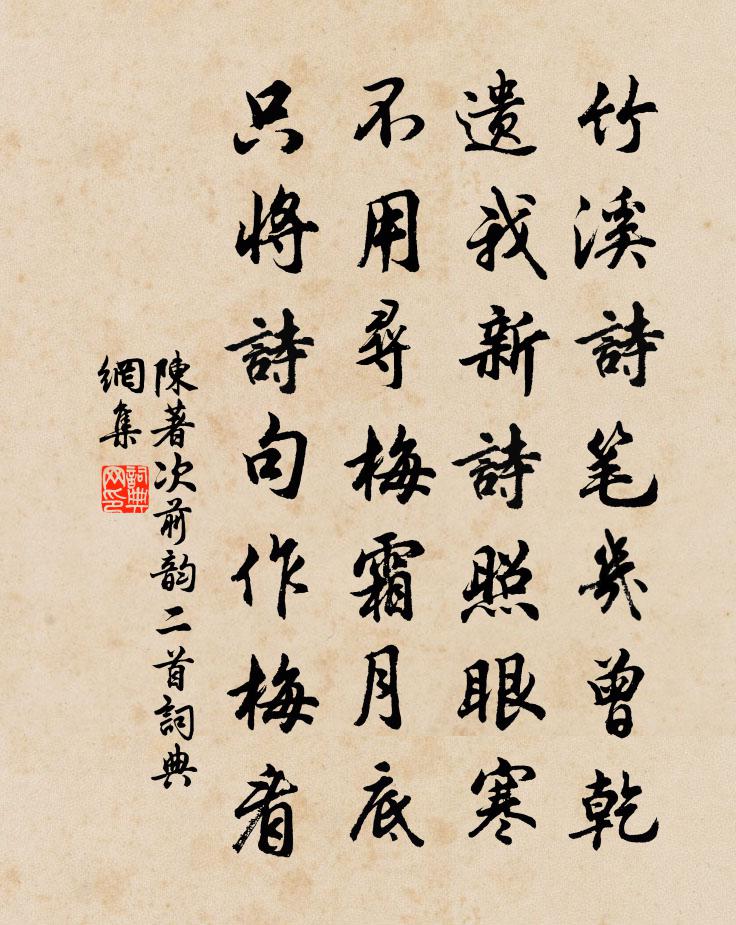 竹溪詩笔幾曾乾
遗我新詩照眼寒
不用尋梅霜月底
只將詩句作梅看
陳著次前韵二首詞典
網集
詞典
网印